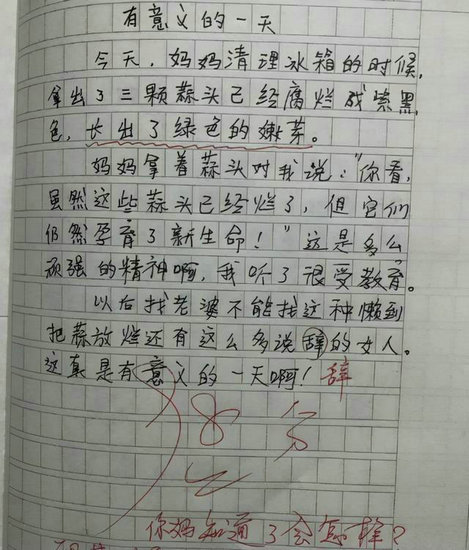 有意义的一天
今天，妈妈清理冰箱的时候，
拿出了三颗蒜头已经腐烂成紫黑
色，长出了绿色的嫩芽。
妈妈拿着蒜头对我说："你看，
虽然这些蒜头已经烂了，但它们
仍然孕育了新生命！"这是多么
顽强的精神啊，我听了很受教育。
以后找老婆不能找这种懒到
把蒜放烂还有这么多说辞的女人。
这真是有意义的一天啊！辞
8分
你妈知道了会怎样？